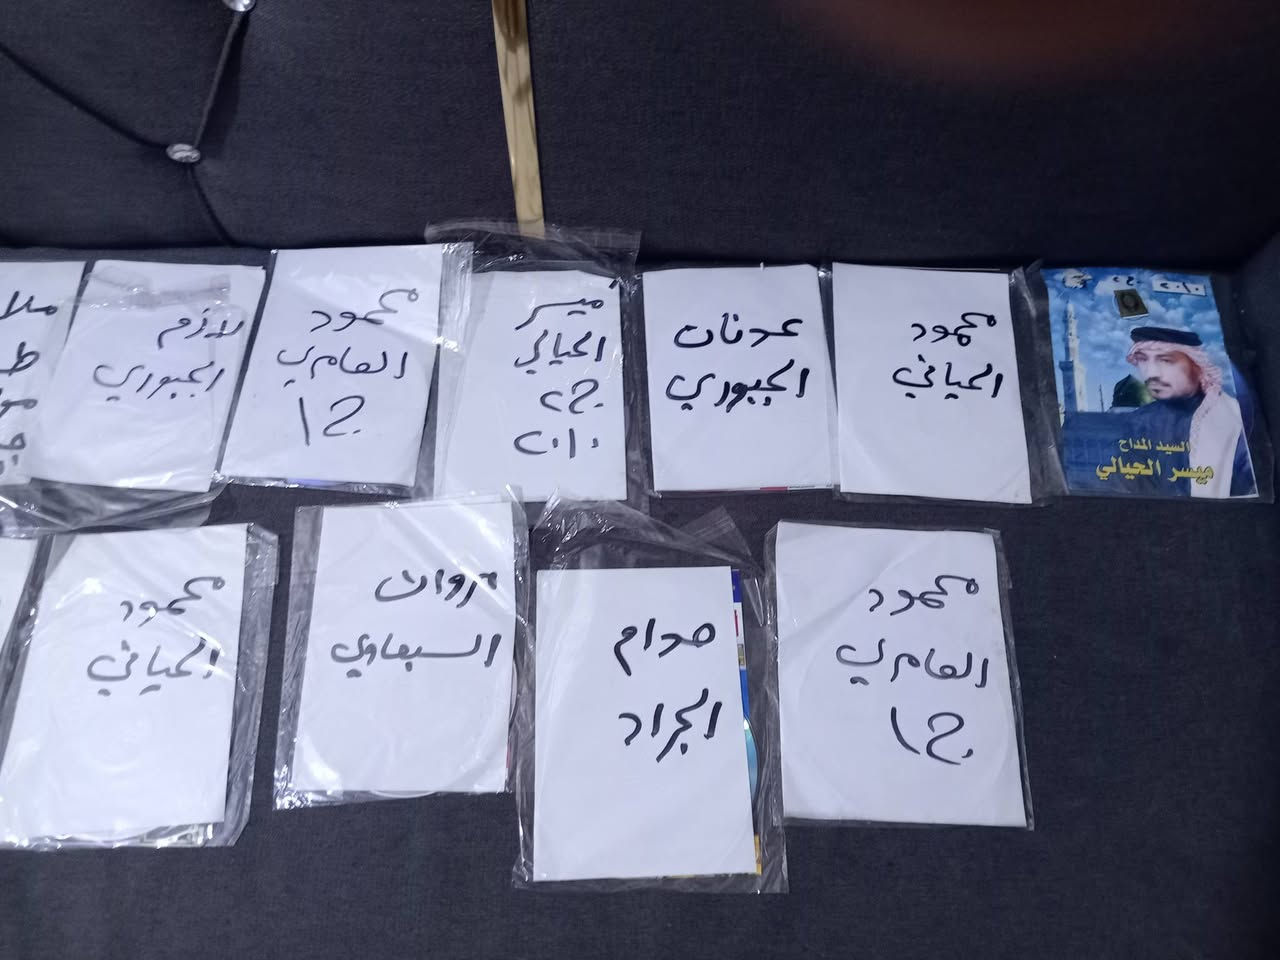 ٢٠١٠ ج٢
السيد المداح
ميسر الحيالي
محمود
الحياني
عدنان
الجبوري
ميسر
الحيالي
ج٢
٢٠١٠
محمود
العامري
ج١
لازم
الجبوري
ملا
محمود
العامري
ج١
صدام
الجراد
مروان
السبعاوي
محمود
الحياني